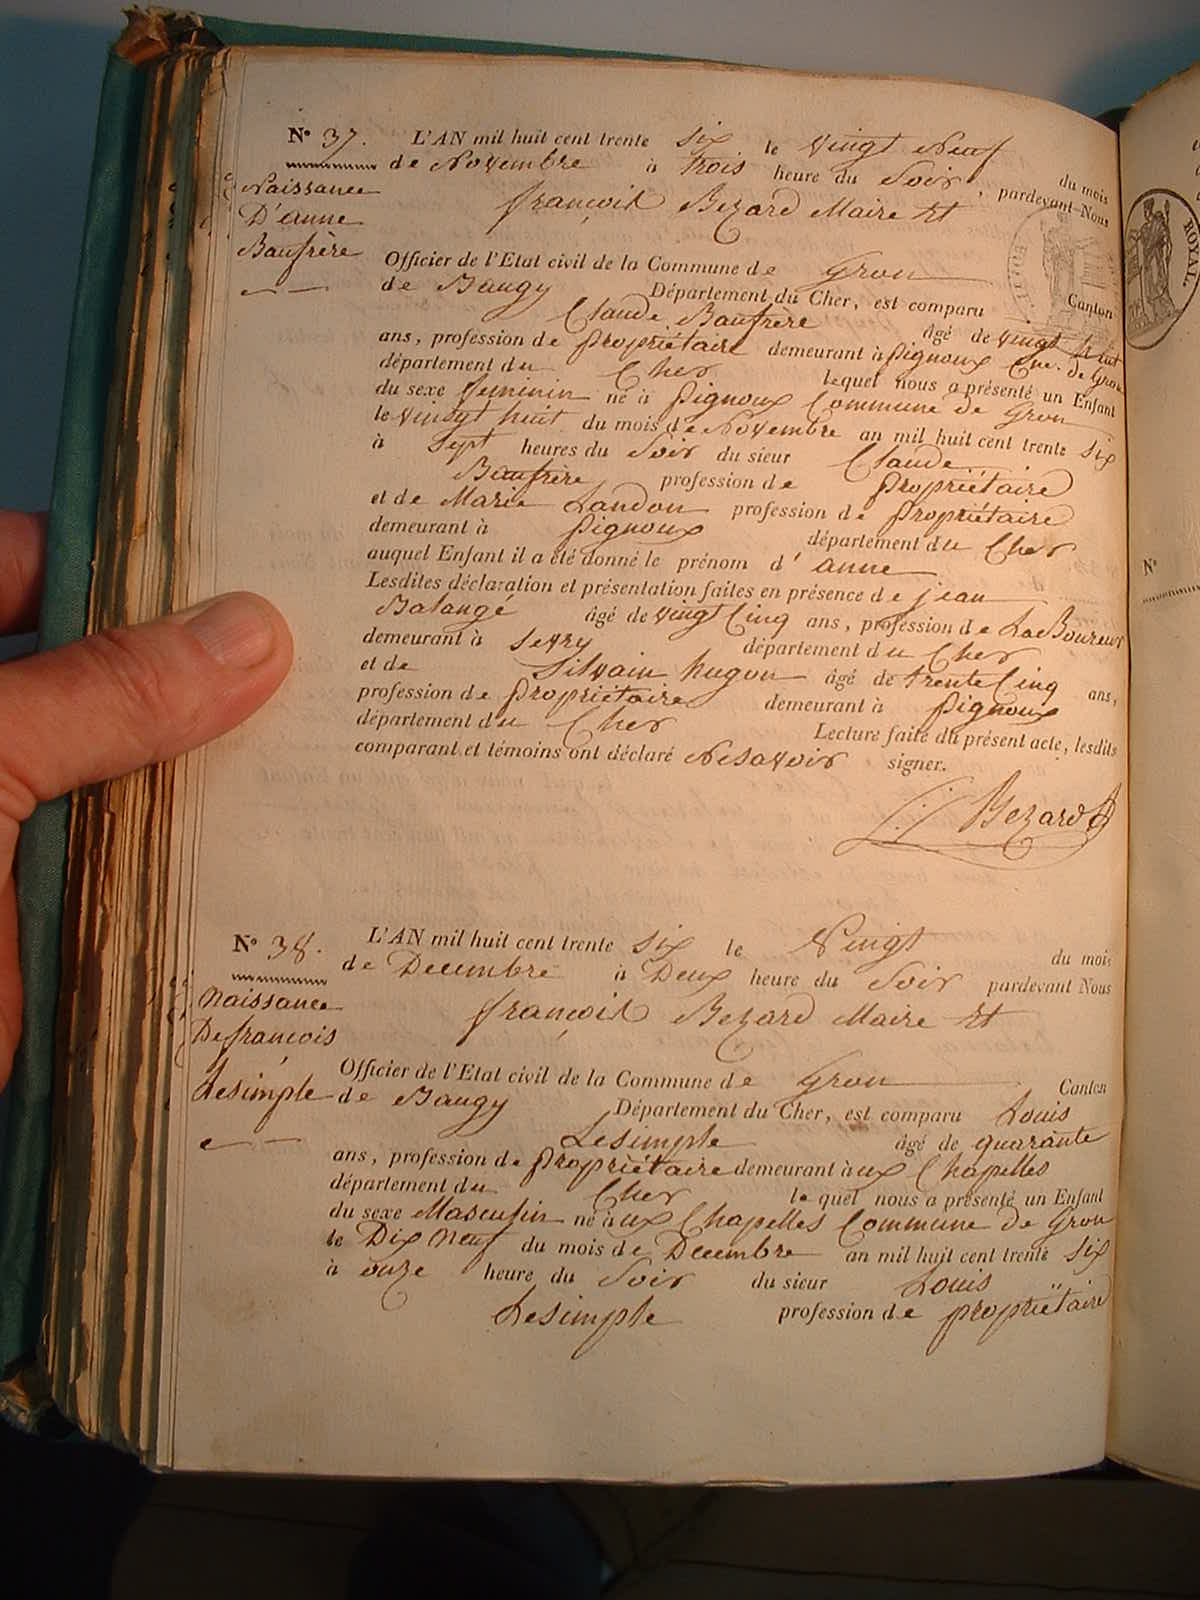 N° 37.
Naissance
D'anne
Baufrère
L'AN mil huit cent trente six le vingt Neuf du mois
de Novembre à trois heure du Soir, pardevant Nous
françois Bezard Maire Et
Officier de l'Etat civil de la Commune de Gron Canton
de Baugy Département du Cher, est comparu
Claude Baufrère âgé de vingt huit
ans, profession de propriétaire demeurant à pignoux Cne. de Gron
département du Cher lequel nous a présenté un Enfant
du sexe feminin né à pignoux Commune de Gron
le vingt huit du mois de Novembre an mil huit cent trente six
à Sept heures du Soir du sieur Claude
Baufrère profession de propriétaire
et de Marie Landon profession de propriétaire
demeurant à pignoux département du Cher
auquel Enfant il a été donné le prénom d'anne
Lesdites déclaration et présentation faites en présence de jean
Balangé âgé de vingt Cinq ans, profession de LaBoureur
demeurant à Sevry département du Cher
et de Silvain hugon âgé de trente Cinq ans,
profession de propriétaire demeurant à pignoux
département du Cher Lecture faite du présent acte, lesdits
comparant et témoins ont déclaré Nesavoir signer.
Bezard
N° 38.
Naissance
De françois
Lesimple
L'AN mil huit cent trente six le Vingt du mois
de Decembre à Deux heure du Soir pardevant Nous
françois Bezard Maire Et
Officier de l'Etat civil de la Commune de Gron Canton
de Baugy Département du Cher, est comparu Louis
Lesimple âgé de quarante
ans, profession de propriétaire demeurant àux Chapelles
département du Cher le quel nous a présenté un Enfant
du sexe Masculin né àux Chapelles Commune de Gron
le Dix Neuf du mois de Decembre an mil huit cent trente six
à onze heure du Soir du sieur Louis
Lesimple profession de propriètaire
ROYAL.
N°